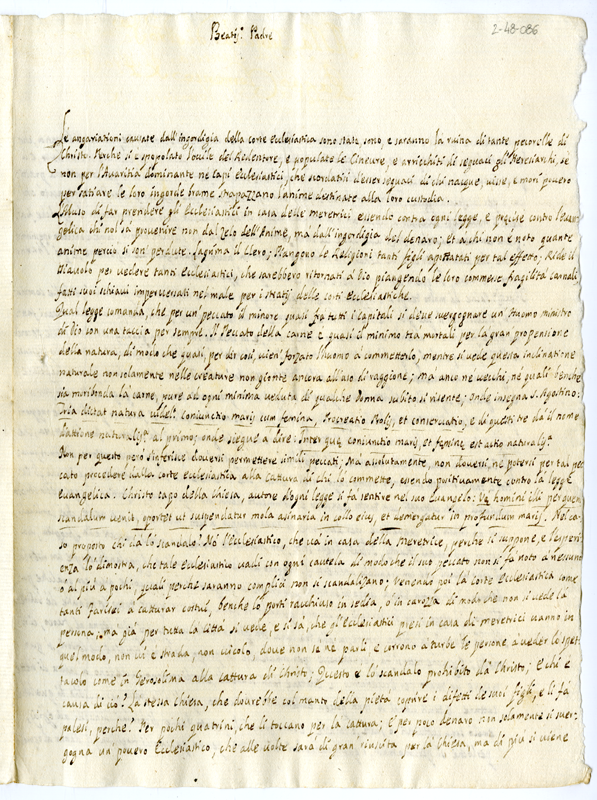 2-48-086
Beatis.o Padre
Le angariationi causate dall'ingordigia della corte ecclesiastica sono state, sono, e saranno la ruina di tante pecorelle di
Christo. Perche si è spopolato l'ovile del Redentore, e populate le Ginevre, e arricchiti di seguaci gli Heresiarchi, se
non per l'Avaritia dominante ne capi Ecclesiastici, che scordatisi d'esser seguaci di chi nacque, visse, e morì povero
per satiare le loro ingorde brame strapazzano l'anime destinate alla loro custodia.
L'abuso di far prendere gli Ecclesiastici in casa delle meretrici essendo contro ogni legge, e precise contro l'Evan-
gelica chi nol sà provenire non dal Zelo dell'Anime, ma dall'ingordigia del denaro; et a chi non è noto quante
anime perciò si son' perdute. Lagrima il Clero; Piangono le Religioni tanti figli apostatati per tal effetto; Ride il
Diavolo per vedere tanti Ecclesiastici, che sarebbero ritornati a Dio piangendo le loro commesse fragilità carnali
fatti suoi schiavi imperversati nel male per i stratij delle corti Ecclesiastiche.
Qual legge comanda, che per un' peccato il minore quasi fra tutti i capitali si deve svergognare un Huomo ministro
di Dio con una taccia per sempre. Il Peccato della carne è quasi il minimo tra mortali per la gran propensione
della natura, di modo che quasi, per dir così, vien' forzato l'huomo a commetterlo, mentre si vede questa inclinatione
naturale non solamente nelle creature non gionte ancora all'uso di raggione; ma anco ne vecchi, ne quali benche
sia moribonda la carne, pure ad ogni minima veduta di qualche donna subito si risente; onde insegna S. Agostino:
Tria dictat natura videl.t coniunctio maris cum femina, Procreatio Prolis, et conservatio, e di questi tre dà il nome
d'attione naturaliss.a al primo; onde siegue a dire: Inter que coniunctio maris, et femine est actio naturaliss.a
Non per questo però s'inferisce doversi permettere simili peccati; Ma assolutamente, non doversi, ne potersi per tal pec
cato procedere dalla corte ecclesiastica alla cattura di chi lo commette, essendo positivamente contro la legge
Evangelica. Christo capo della Chiesa, autore d'ogni legge si fà sentire nel suo Evangelo: Ve homini illi per quem
scandalum venit, oportet ut suspendatur mola asinaria in collo eius, et demergatur in profundum maris. Nel ca-
so proposto chi dà lo scandalo? Nò l'Ecclesiastico, che và in casa della meretrice, perche si suppone, e l'esperi-
enza lo dimostra, che tale Ecclesiastico vadi con ogni cautela di modo che il suo peccato non si fà noto a nessuno
ò al più a pochi, quali perche saranno complici non si scandalizano; Venendo poi la corte Ecclesiastica come
tanti Farisei a catturar costui, benche lo porti racchiuso in sedia, ò in carozza di modo che non si veda la
persona; ma già per tutta la città si vede, e si sà, che gl'Ecclesiastici presi in casa di meretrici vanno in
quel modo, non vi è strada, non vicolo, dove non se ne parli e corrono a turbe le persone, a veder lo spet-
tacolo come in Gerosolima alla cattura di Christo; Questo è lo scandalo prohibito da Christo; E chi è
causa di ciò? La stessa Chiesa, che dovrebbe col manto della pietà coprire i difetti de suoi figli, e li fà
palesi, perche? Per pochi quatrini, che li toccano per la cattura; E per poco denaro non solamente si sver-
gogna un' povero Ecclesiastico, che alle volte sarà di gran riuscita per la Chiesa, ma di più si viene